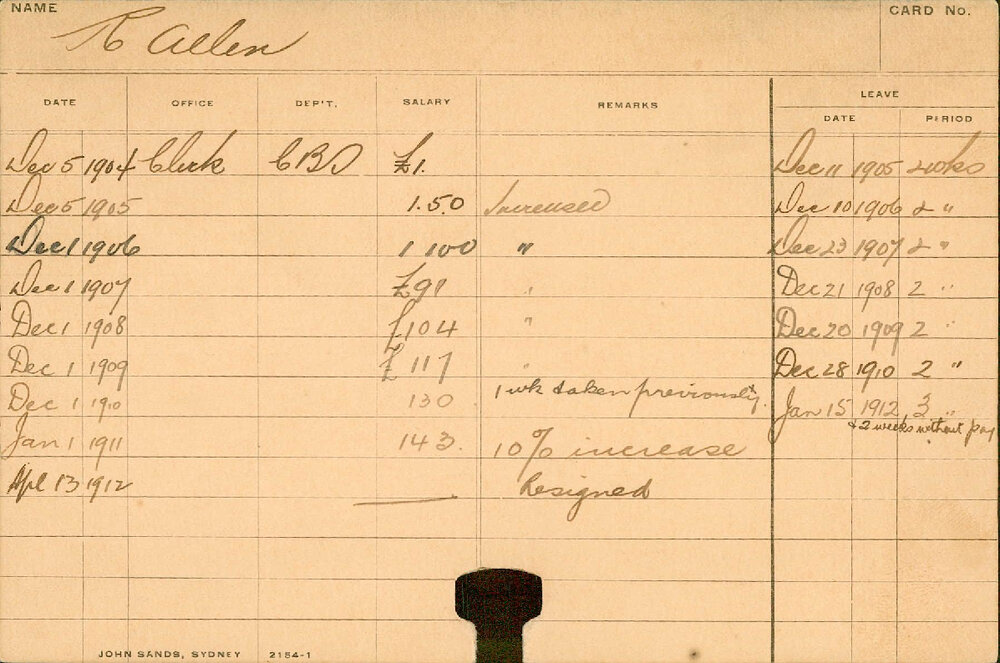 NAME CARD No.
R Allen
LEAVE
DATE OFFICE DEP'T. SALARY REMARKS
DATE PERIOD
Dec 5 1904 Clerk CBD £1. Dec 11 1905 2 wks
Dec 5 1905 1.5.0 Increased Dec 10 1906 2 "
Dec 1 1906 1 10 0 " Dec 23 1907 2 "
Dec 1 1907 £91 " Dec 21 1908 2 "
Dec 1 1908 £104 " Dec 20 1909 2 "
Dec 1 1909 £ 117 " Dec 28 1910 2 "
Dec 1 1910 130 1 wk taken previously. Jan 15 1912 3 "
+2 weeks without pay
Jan 1 1911 143. 10% increase
Apl 13 1912 Resigned
JOHN SANDS, SYDNEY 2154-1